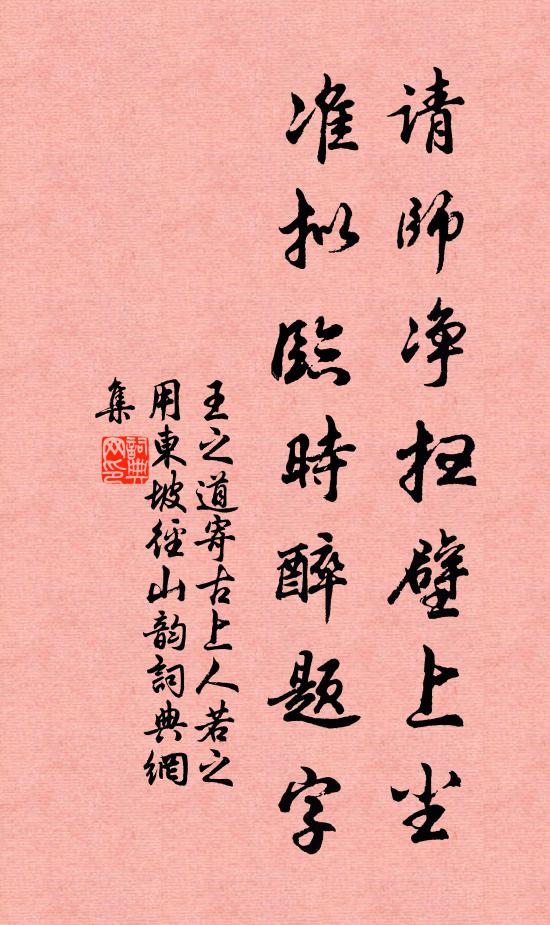 请師净扫壁上尘
准拟臨時醉题字
王之道寄古上人若之
用東坡徑山韵詞典網
集
詞典网印